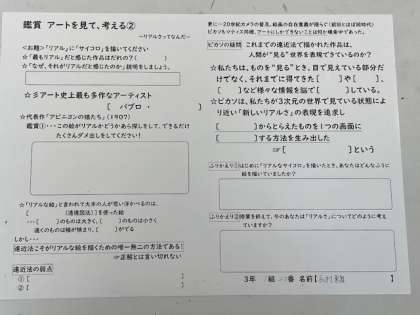 鑑賞 アートを見て、考える②
～リアルさってなんだ～
＜お題＞「リアル」に「サイコロ」を描いてください
☆「最もリアル」だと感じた作品はだれの？（　　　）
☆「なぜ、それがリアルだと感じたのか」説明をしましょう。
☆彡アート史上最も多作なアーティスト
[　パブロ・　　　]
☆代表作「アビニヨンの娘たち」(1907)
鑑賞①・・・この絵がリアルかどうかあら探しをして、できるだけ
たくさんダメ出しをしてください！
☆「リアルな絵」と言われて大半の人が思い浮かべるのは、
[　　　(透視図法)]を使った絵
・・・[　　]のものは大きく、[　　]のものは小さく
遠くのものは幅が狭まり、[　　]がでる
しかし・・・
遠近法こそがリアルな絵を描くための唯一無二の方法である！
⇒正解とは言い切れない
遠近法の弱点
①[
②[
更に…20世紀カメラの普及、絵画の存在意義が揺らぐ(前回とほぼ同時代)
ピカソもマティス同様、アートにしかできないことは何か模索中であった。
ピカソの疑問 これまでの遠近法で描かれた作品は、
人間が“見る”世界を表現できているのか？
☆私たちは、ものを“見る”とき、目で見えている部分だ
けでなく、それまでに得てきた[　　]や[　　]、
[　　]など様々な情報を脳で[　　　]している。
☆ピカソは、私たちが3次元の世界で見ている状態によ
り近い「新しいリアルさ」の表現を追求し
[　　　]からとらえたものを1つの画面に
[　　　]する方法を生み出した
☞[　　　]という
ふりかえり① はじめに「リアルなサイコロ」を描いたとき、あなたはどんなふうに
絵を描いていましたか？
ふりかえり② 授業を終えて、今のあなたは「リアルさ」についてどのように考え
ますか？
3年　組　番 名前[　　]